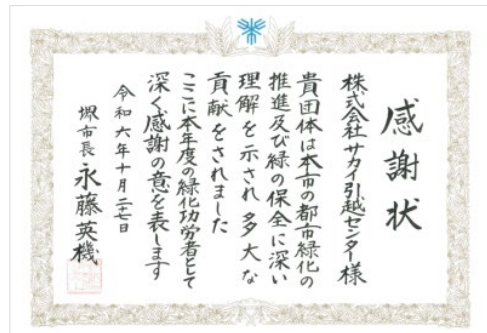 感謝状
株式会社サカイ引越センター様
貴団体は本市の都市緑化の
推進及び緑の保全に深い
理解を示され多大な
貢献をされました
ここに本年度の緑化功労者として
深く感謝の意を表します
令和六年十月二十七日
堺市長 永藤英機